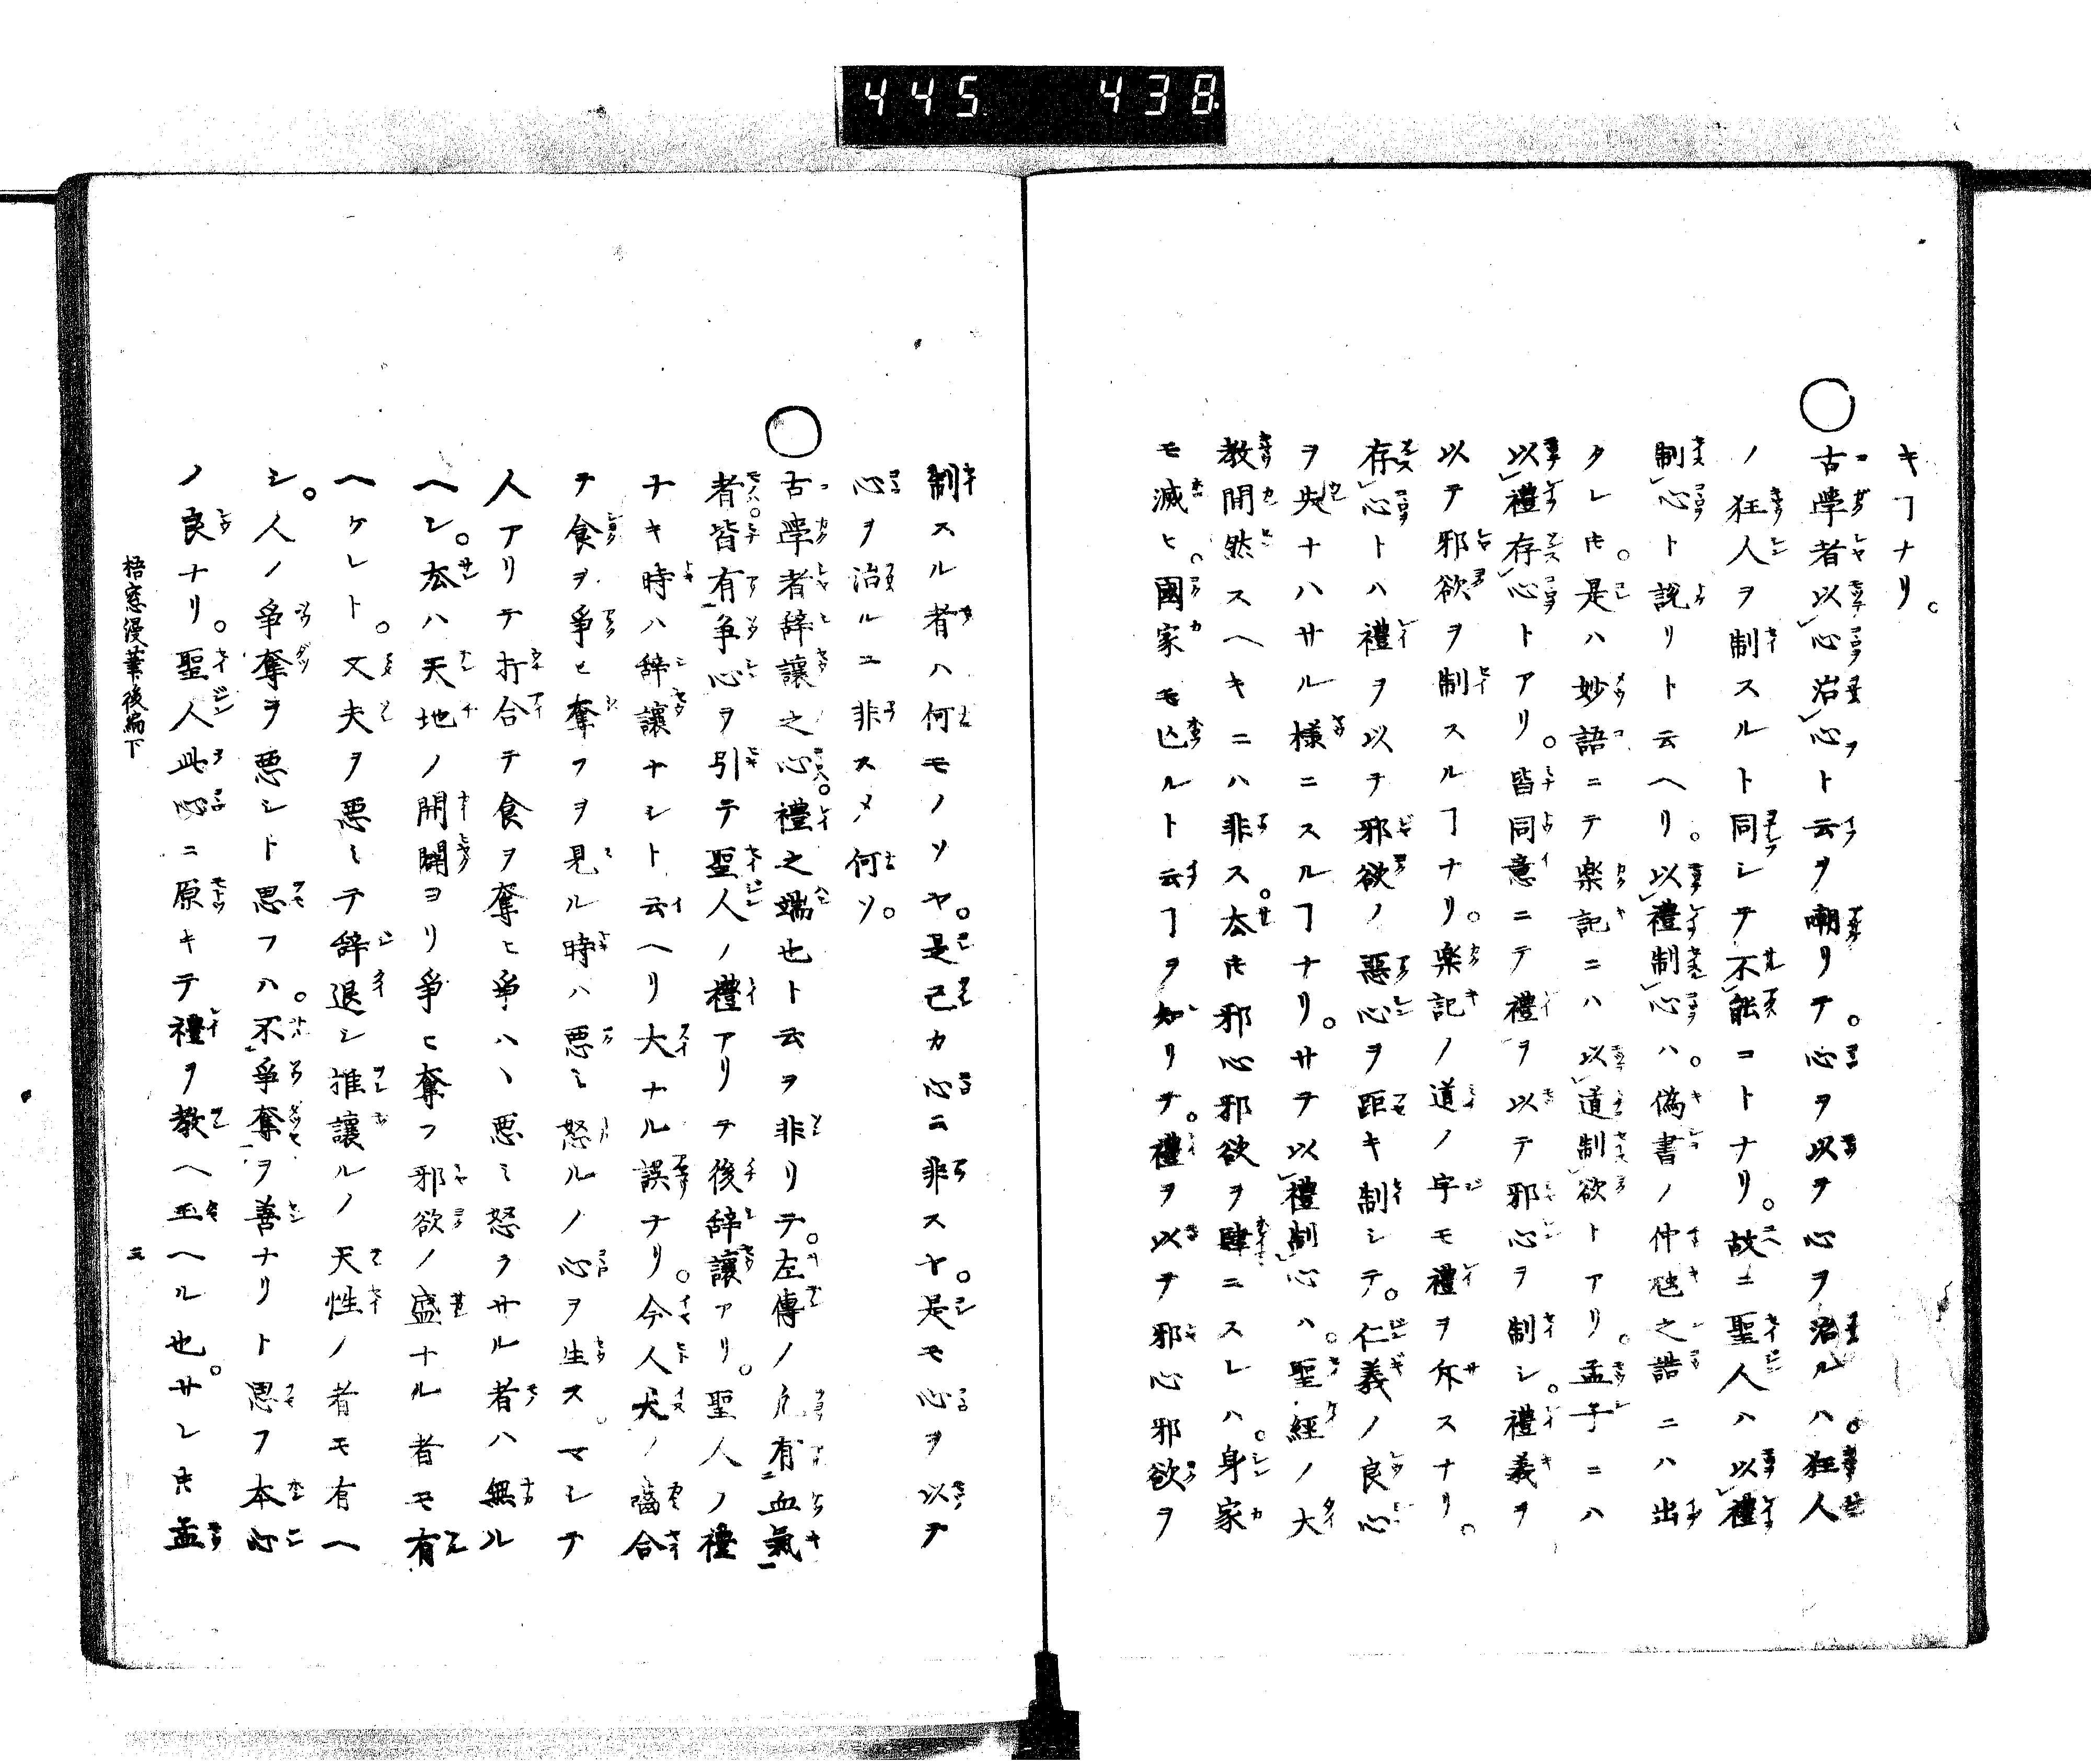 445 438
キヿナリ。
○古學者以心治心ト云ヲ嘲リテ。心ヲ以テ心ヲ治ルハ。狂人
ノ狂人ヲ制スルト同シテ不能コトナリ。故ニ聖人ハ以禮
制心ト説リト云ヘリ。以禮制心ハ。偽書ノ仲虺之誥ニハ出
タレ𪜈。是ハ妙語ニテ楽記ニハ以道制欲トアリ。孟子ニハ
以禮存心トアリ。皆同意ニテ禮ヲ以テ邪心ヲ制シ。禮義ヲ
以テ邪欲ヲ制スルヿナリ。楽記ノ道ノ字モ禮ヲ斥スナリ。
存心トハ禮ヲ以テ邪欲ノ惡心ヲ距キ制シテ。仁義ノ良心
ヲ失ナハサル様ニスルヿナリ。サテ以禮制心ハ。聖經ノ大
教開然スヘキニハ非ス。太𪜈邪心邪欲ヲ肆ニスレハ。身家
モ滅ヒ。國家モ亾ルト云ヿヲ知リテ。禮ヲ以テ邪心邪欲ヲ
制スル者ハ何モノソヤ。是己カ心ニ非スヤ。是モ心ヲ以テ
心ヲ治ルニ非スメ何ソ。
○古學者辞讓之心禮之端也ト云ヲ非リテ。左傳ノ凢有血氣
者皆有争心ヲ引テ聖人ノ禮アリテ後辞讓アリ。聖人ノ禮
ナキ時ハ辞讓ナシト云ヘリ大ナル誤ナリ。今人犬ノ噛合
テ食ヲ爭ヒ奪フヲ見ル時ハ悪ミ怒ルノ心ヲ生ス。マシテ
人アリテ打合テ食ヲ奪ヒ爭ハヽ悪ミ怒ラサル者ハ無ル
ヘシ。太ハ天地ノ開闢ヨリ爭ヒ奪フ邪欲ノ盛ナル者モ有
ヘケレト。又夫ヲ悪ミテ辞退シ推讓ルノ天性ノ者モ有ヘ
シ。人ノ爭奪ヲ悪シト思フハ。不爭奪ヲ善ナリト思フ本心
ノ良ナリ。聖人此心ニ原キテ禮ヲ教ヘ玉ヘル也。サレ𪜈孟
梧窓漫筆後編下 三